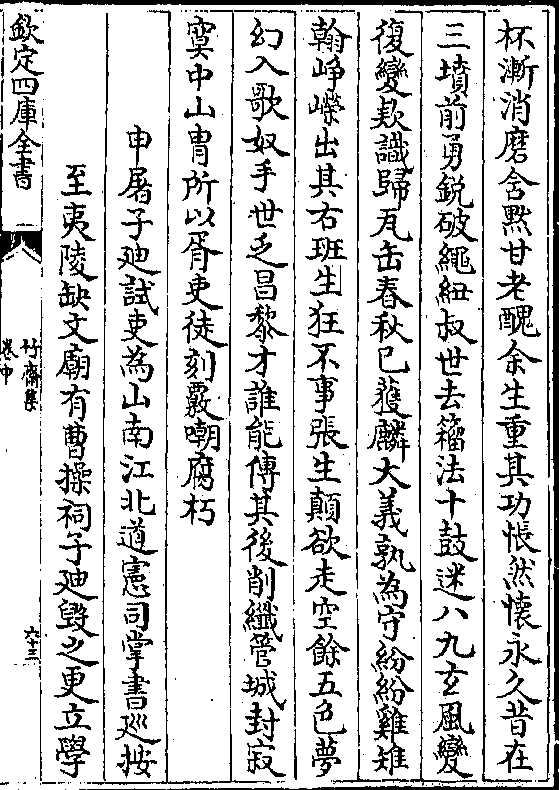 杯漸消磨舍㸃甘老醜余生重其功悵然懷永久昔在
三墳前勇鋭破繩紐叔世去籀法十鼓迷八九玄風變
復變欵識歸瓦缶春秋已獲麟大義孰為守紛紛雞雉
翰崢嶸出其右班生狂不事張生顛欲走空餘五色夢
幻入歌奴手世乏昌黎才誰能傳其後削纖管城封寂
寞中山胄所以胥吏徒刻覈嘲腐朽
申屠子迪試吏為山南江北道憲司掌書廵按
至夷陵缺文廟有曹操祠子迪毀之更立學
欽定四庫全書
竹齋集
卷中
六十三